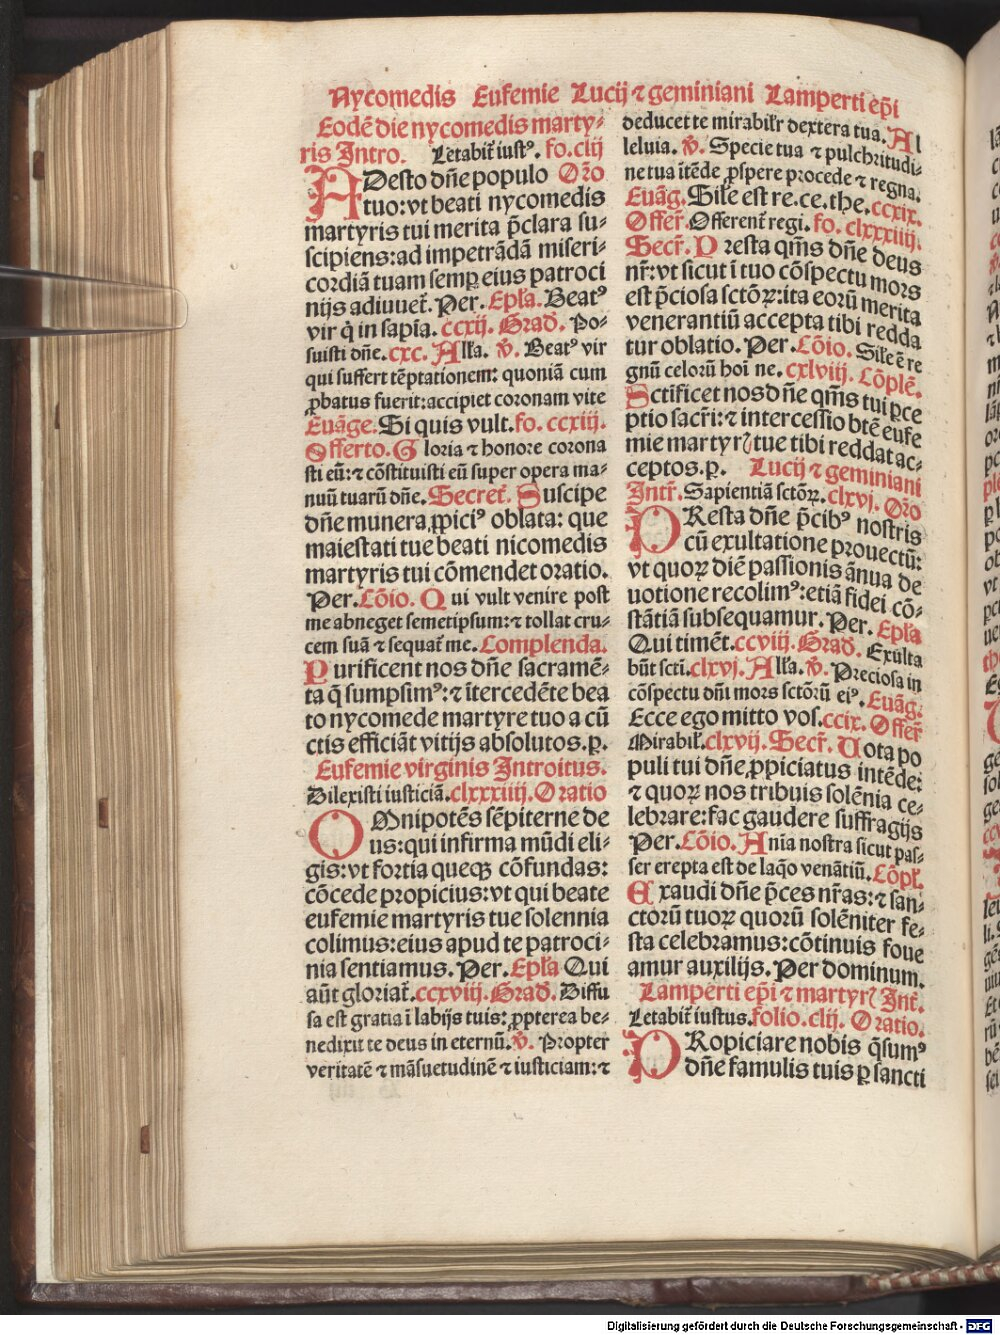 Nycomedis Eufemie Lucij ⁊ geminiani Lamperti ep̄i
Eodē die nycomedis marty⸗
ris Intro. Letabit̄ iustꝰ. fo. clij
ADesto dn̄e populo Or̄o
tuo: vt beati nycomedis
martyris tui merita p̄clara su⸗
scipiens: ad impetrādā miseri⸗
cordiā tuam semꝑ eius patroci
nijs adiuuet̄. Per. Ep̄la. Beatꝰ
vir q̇ in sap̄ia. ccxij. Grad̄. Po⸗
suisti dn̄e. cxc. All̄a. ℣. Beatꝰ vir
qui suffert tēptationem: quoniā cum
ꝓbatus fuerit: accipiet coronam vite
Euāge. Si quis vult. fo. ccxiij.
Offerto. Gloria ⁊ honore corona
sti eū: ⁊ cōstituisti eū super opera ma⸗
nuū tuarū dn̄e. Secret̄. Suscipe
dn̄e munera ꝓpiciꝰ oblata: que
maiestati tue beati nicomedis
martyris tui cōmendet oratio.
Per. Cōio. Qui vult venire post
me abneget semetipsum: ⁊ tollat cru⸗
cem suā ⁊ sequat̄ me. Complenda.
Purificent nos dn̄e sacramē⸗
ta q̄ sumpsimꝰ: ⁊ ītercedēte bea
to nycomede martyre tuo a cū
ctis efficiāt vitijs absolutos. p̱.
Eufemie virginis Introitus.
Dilexisti iusticiā. clxxxiiij. Oratio
OMnipotēs sēpiterne de
us: qui infirma mūdi eli⸗
gis: vt fortia queqꝫ cōfundas:
cōcede propicius: vt qui beate
eufemie martyris tue solennia
colimus: eius apud te patroci⸗
nia sentiamus. Per. Ep̄la Qui
aūt gloriat̄. ccxviij. Grad̄. Diffu
sa est gratia ī labijs tuis: ꝓpterea be⸗
nedixit te deus in eternū. ℣. Propter
veritatē ⁊ māsuetudinē ⁊ iusticiam: ⁊
deducet te mirabilr̄ dextera tua. Al
leluia. ℣. Specie tua ⁊ pulchritudi⸗
ne tua ītēde ꝓspere procede ⁊ regna.
Euāg. Sil̄e est re. ce. the. ccxix.
Offer̄. Offerent̄ regi. fo. clxxxiiij.
Secr̄. Presta qm̄s dn̄e deus
nr̄: vt sicut ī tuo cōspectu mors
est p̄ciosa sctōꝝ: ita eorū merita
venerantiū accepta tibi redda
tur oblatio. Per. Cōio. Sil̄e ē re
gnū celorū hoi ne. cxlviij. Cōplē.
Sctificet nos dn̄e qm̄s tui p̱ce
ptio sacri: ⁊ intercessio btē eufe
mie martyrꝭ tue tibi reddat ac⸗
ceptos. p̱. Lucij ⁊ geminiani
Intr̄. Sapientiā sctōꝝ. clxvj. Or̄o
PResta dn̄e p̄cibꝰ nostris
cū exultatione prouectū:
vt quoꝝ diē passionis ānua de
uotione recolimꝰ: etiā fidei cō⸗
stātiā subsequamur. Per. Ep̄la
Qui timēt. ccviij. Grad̄. Exulta
būt scti. clxvj. All̄a. ℣. Preciosa in
cōspectu dn̄i mors sctōrū eiꝰ. Euāg.
Ecce ego mitto vos. ccix. Offer̄
Mirabil̄. clxvij. Secr̄. Vota po
puli tui dn̄e ꝓpiciatus intēde:
⁊ quoꝝ nos tribuis solēnia ce⸗
lebrare: fac gaudere suffragijs
Per. Cōio. Anīa nostra sicut pas⸗
ser erepta est de laq̇o venātiū. Cōpl̄.
Exaudi dn̄e p̄ces nr̄as: ⁊ san⸗
ctorū tuoꝝ quorū solēniter fe⸗
sta celebramus: cōtinuis foue
amur auxilijs. Per dominum.
Lamperti ep̄i ⁊ martyrꝭ Int̄.
Letabit̄ iustus. folio. clij. Oratio.
PRopiciare nobis q̄sumꝰ
dn̄e famulis tuis p̱ sancti
Digitalisierung gefördert durch die Deutsche Forschungsgemeinschaft - DFG